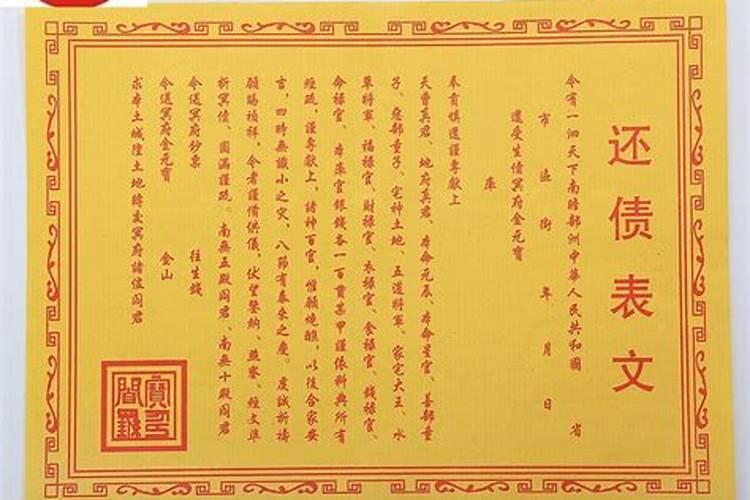 还债表文
今有一泗天下南瞻部洲中華人民共和國 省
市 區 街 年 月 日
還受生債冥府金元寶
庫
奉育填還謹專献上
天曹真君、地府真君、本命元辰、本命星官、善部童
子、惡部童子、宅神土地、五道將軍、家宅大王、水
草將軍、福禄官、財禄官、衣禄官、食禄官、錢禄官、
命禄官、本庫官銀錢各一百貫某甲謹依科典所有
經疏，謹專献上，諸神百官，惟願燒醮，以後合家安
言，四時無識小之灾，八節有泰來之慶。虔誠祈禱
願賜禎祥，令者謹備供儀，伏望鑒納、照察、經文準
折冥債、圆满謹疏。南無五殿阎君、南無十殿阎君
今送冥府鈔票 往生錢
今送冥府金元寶 金山
求本土城隍土地轉交冥府諸位阎君